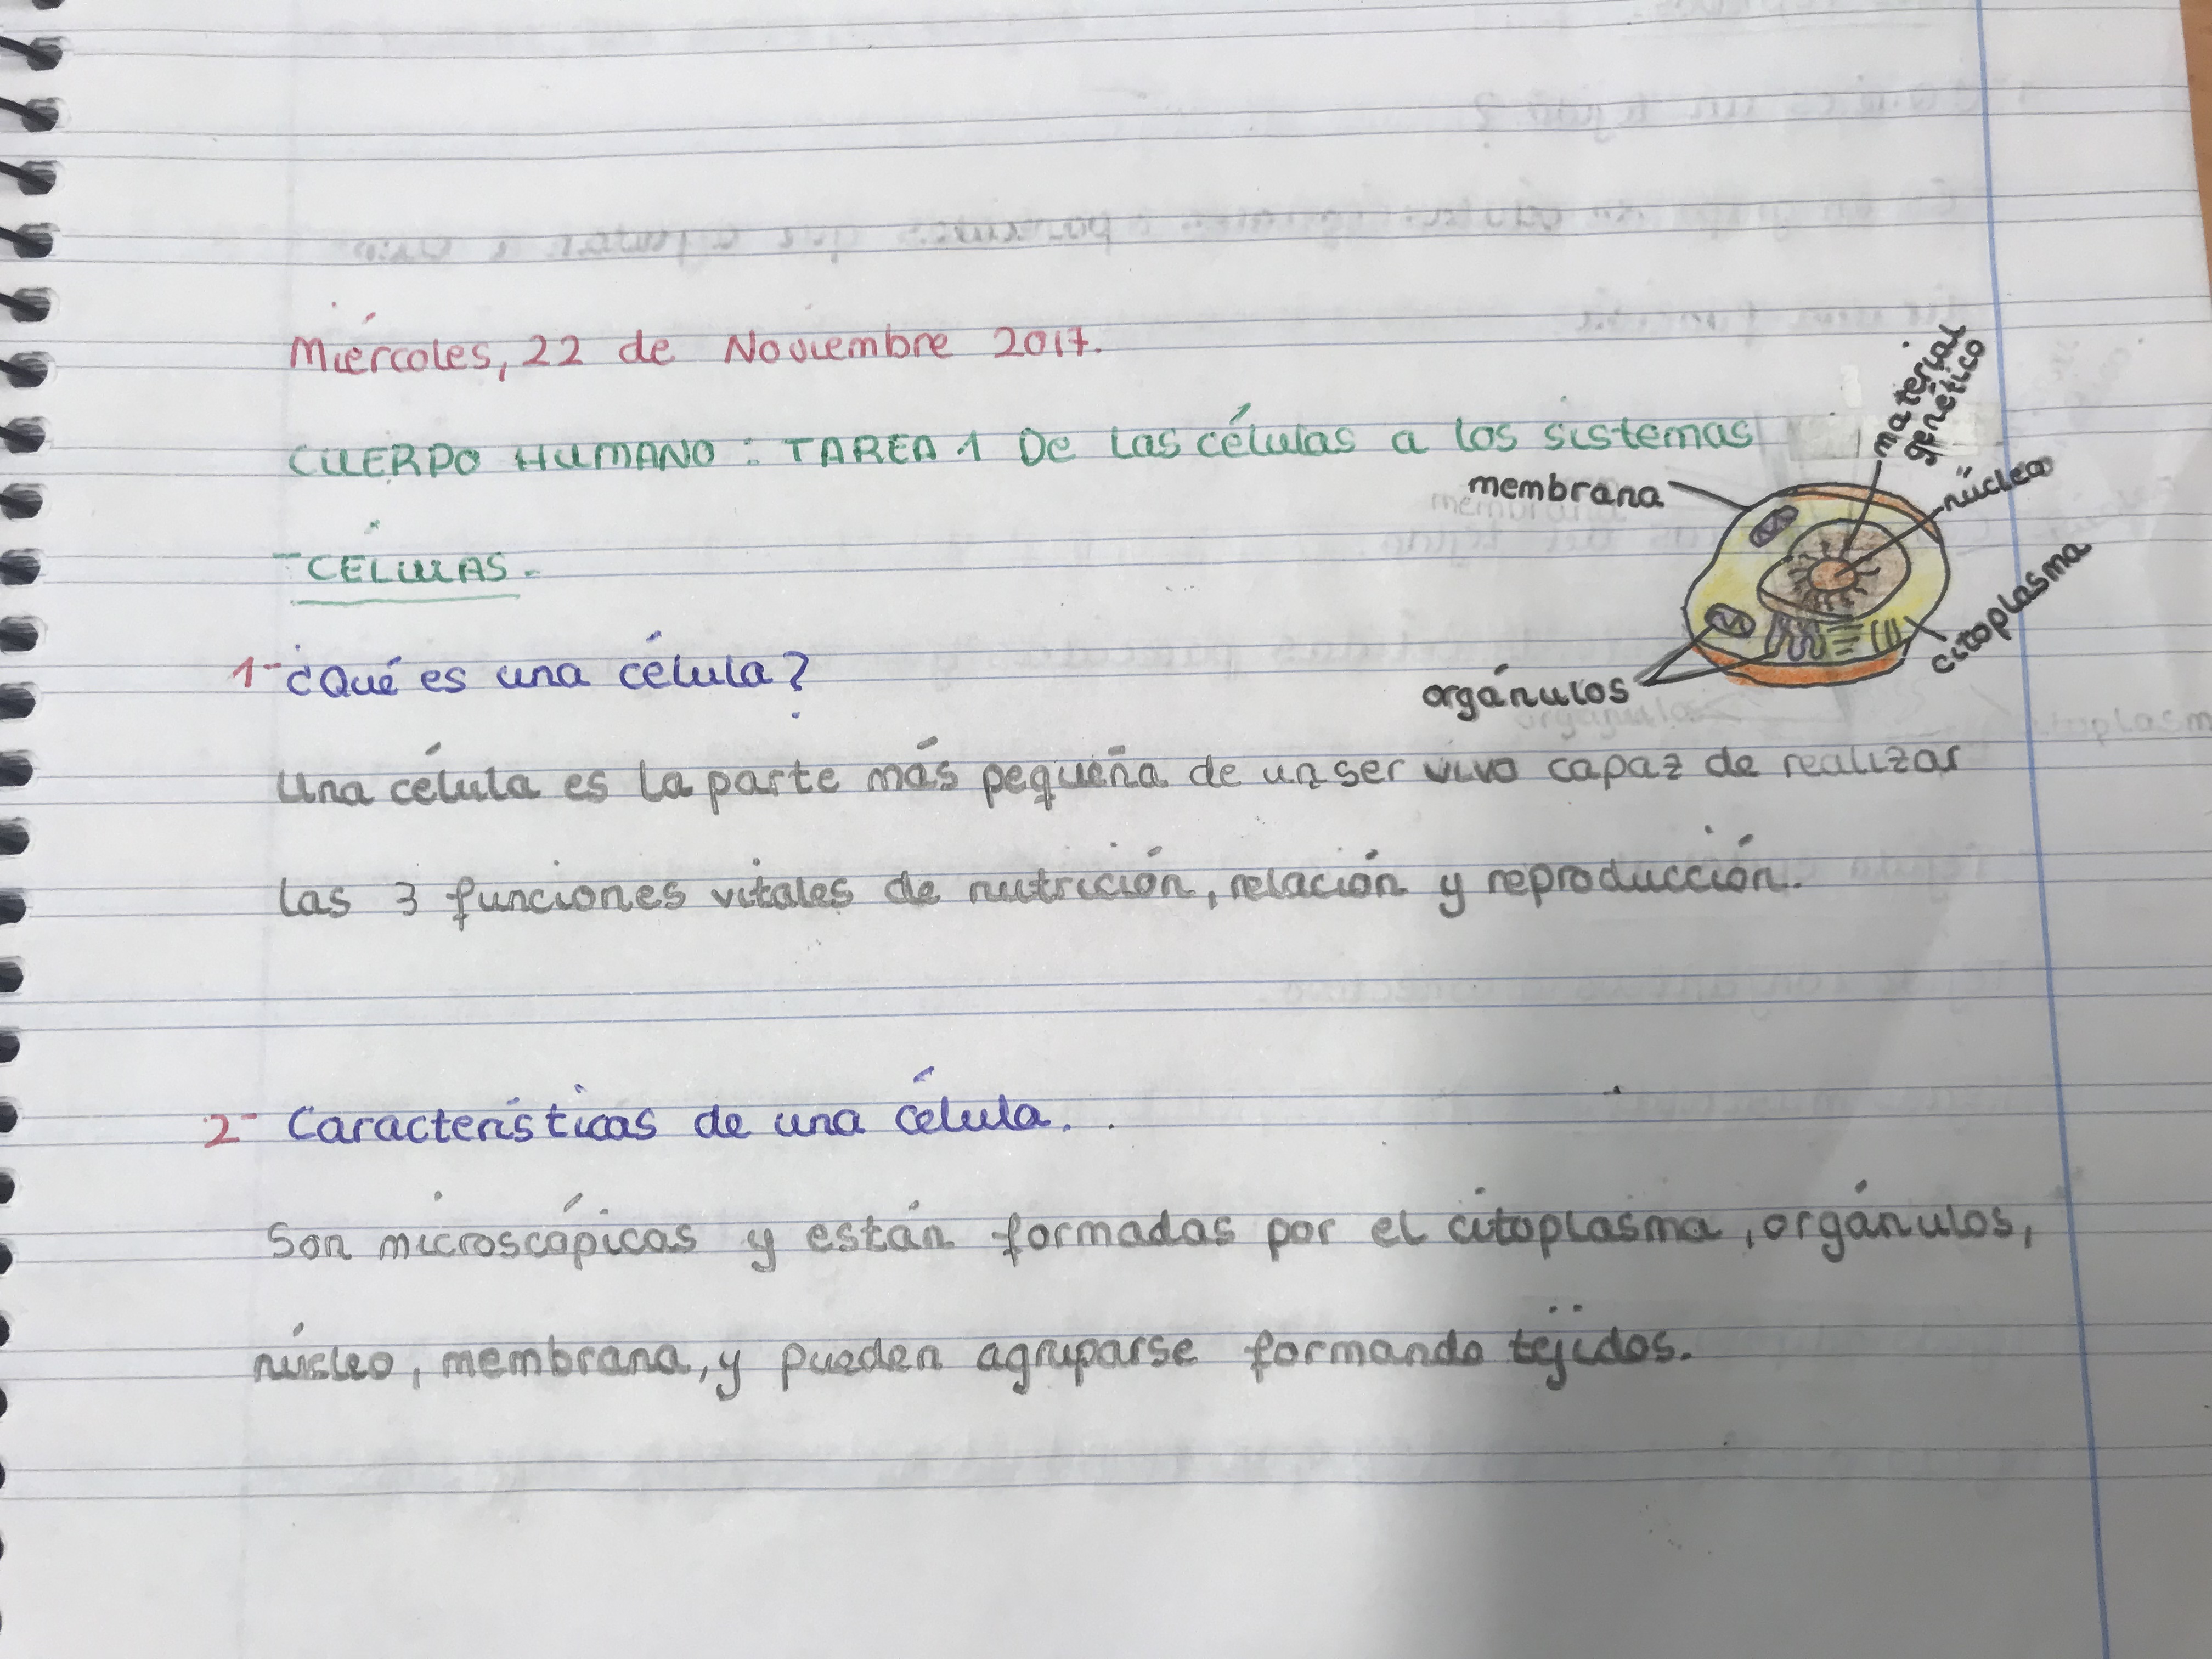 Miércoles, 22 de Noviembre 2017.
CUERPO HUMANO: TAREA 1 De las células a los sistemas
material
genético
membrana
núcleo
- CÉLULAS.
citoplasma
1- ¿Qué es una célula?
orgánulos
Una célula es la parte más pequeña de un ser vivo capaz de realizar
las 3 funciones vitales de nutrición, relación y reproducción.
2- Características de una célula.
Son microscópicas y están formadas por el citoplasma, orgánulos,
núcleo, membrana, y pueden agruparse formando tejidos.